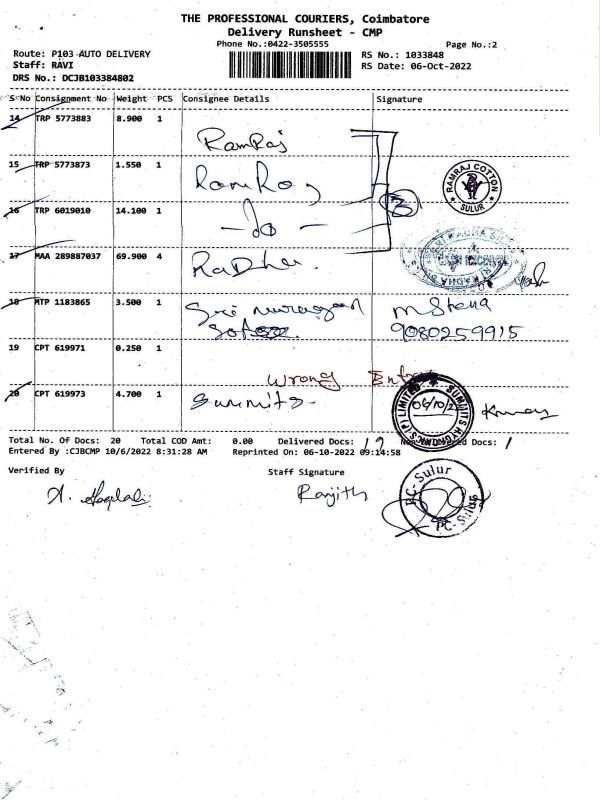 THE PROFESSIONAL COURIERS, Coimbatore
Delivery Runsheet - CMP
Phone No.:0422-3505555
Page No.:2
Route: P103 AUTO DELIVERY
RS No.: 1033848
Staff: RAVI
RS Date: 06-Oct-2022
DRS No.: DCJB103384802
S No Consignment No Weight PCS Consignee Details Signature
14 TRP 5773883 8.900 1
RamRaj
15 TRP 5773873 1.550 1
RamRaj
RAMRAJ COTTON
SULUR
16 TRP 6019010 14.100 1
- do -
3
17 MAA 289887037 69.900 4
Radha
18 MTP 1183865 3.500 1
Sri
9080259915
19 CPT 619971 0.250 1
Wrong Entry
20 CPT 619973 4.700 1
Summits
(P) LIMITED
06/10/22
Total No. Of Docs: 20 Total COD Amt: 0.00 Delivered Docs: 19 Docs: 1
Entered By :CJBCMP 10/6/2022 8:31:28 AM Reprinted On: 06-10-2022 09:14:58
Verified By
Staff Signature
Ranjith
PC-Sulur
PC-Sulur